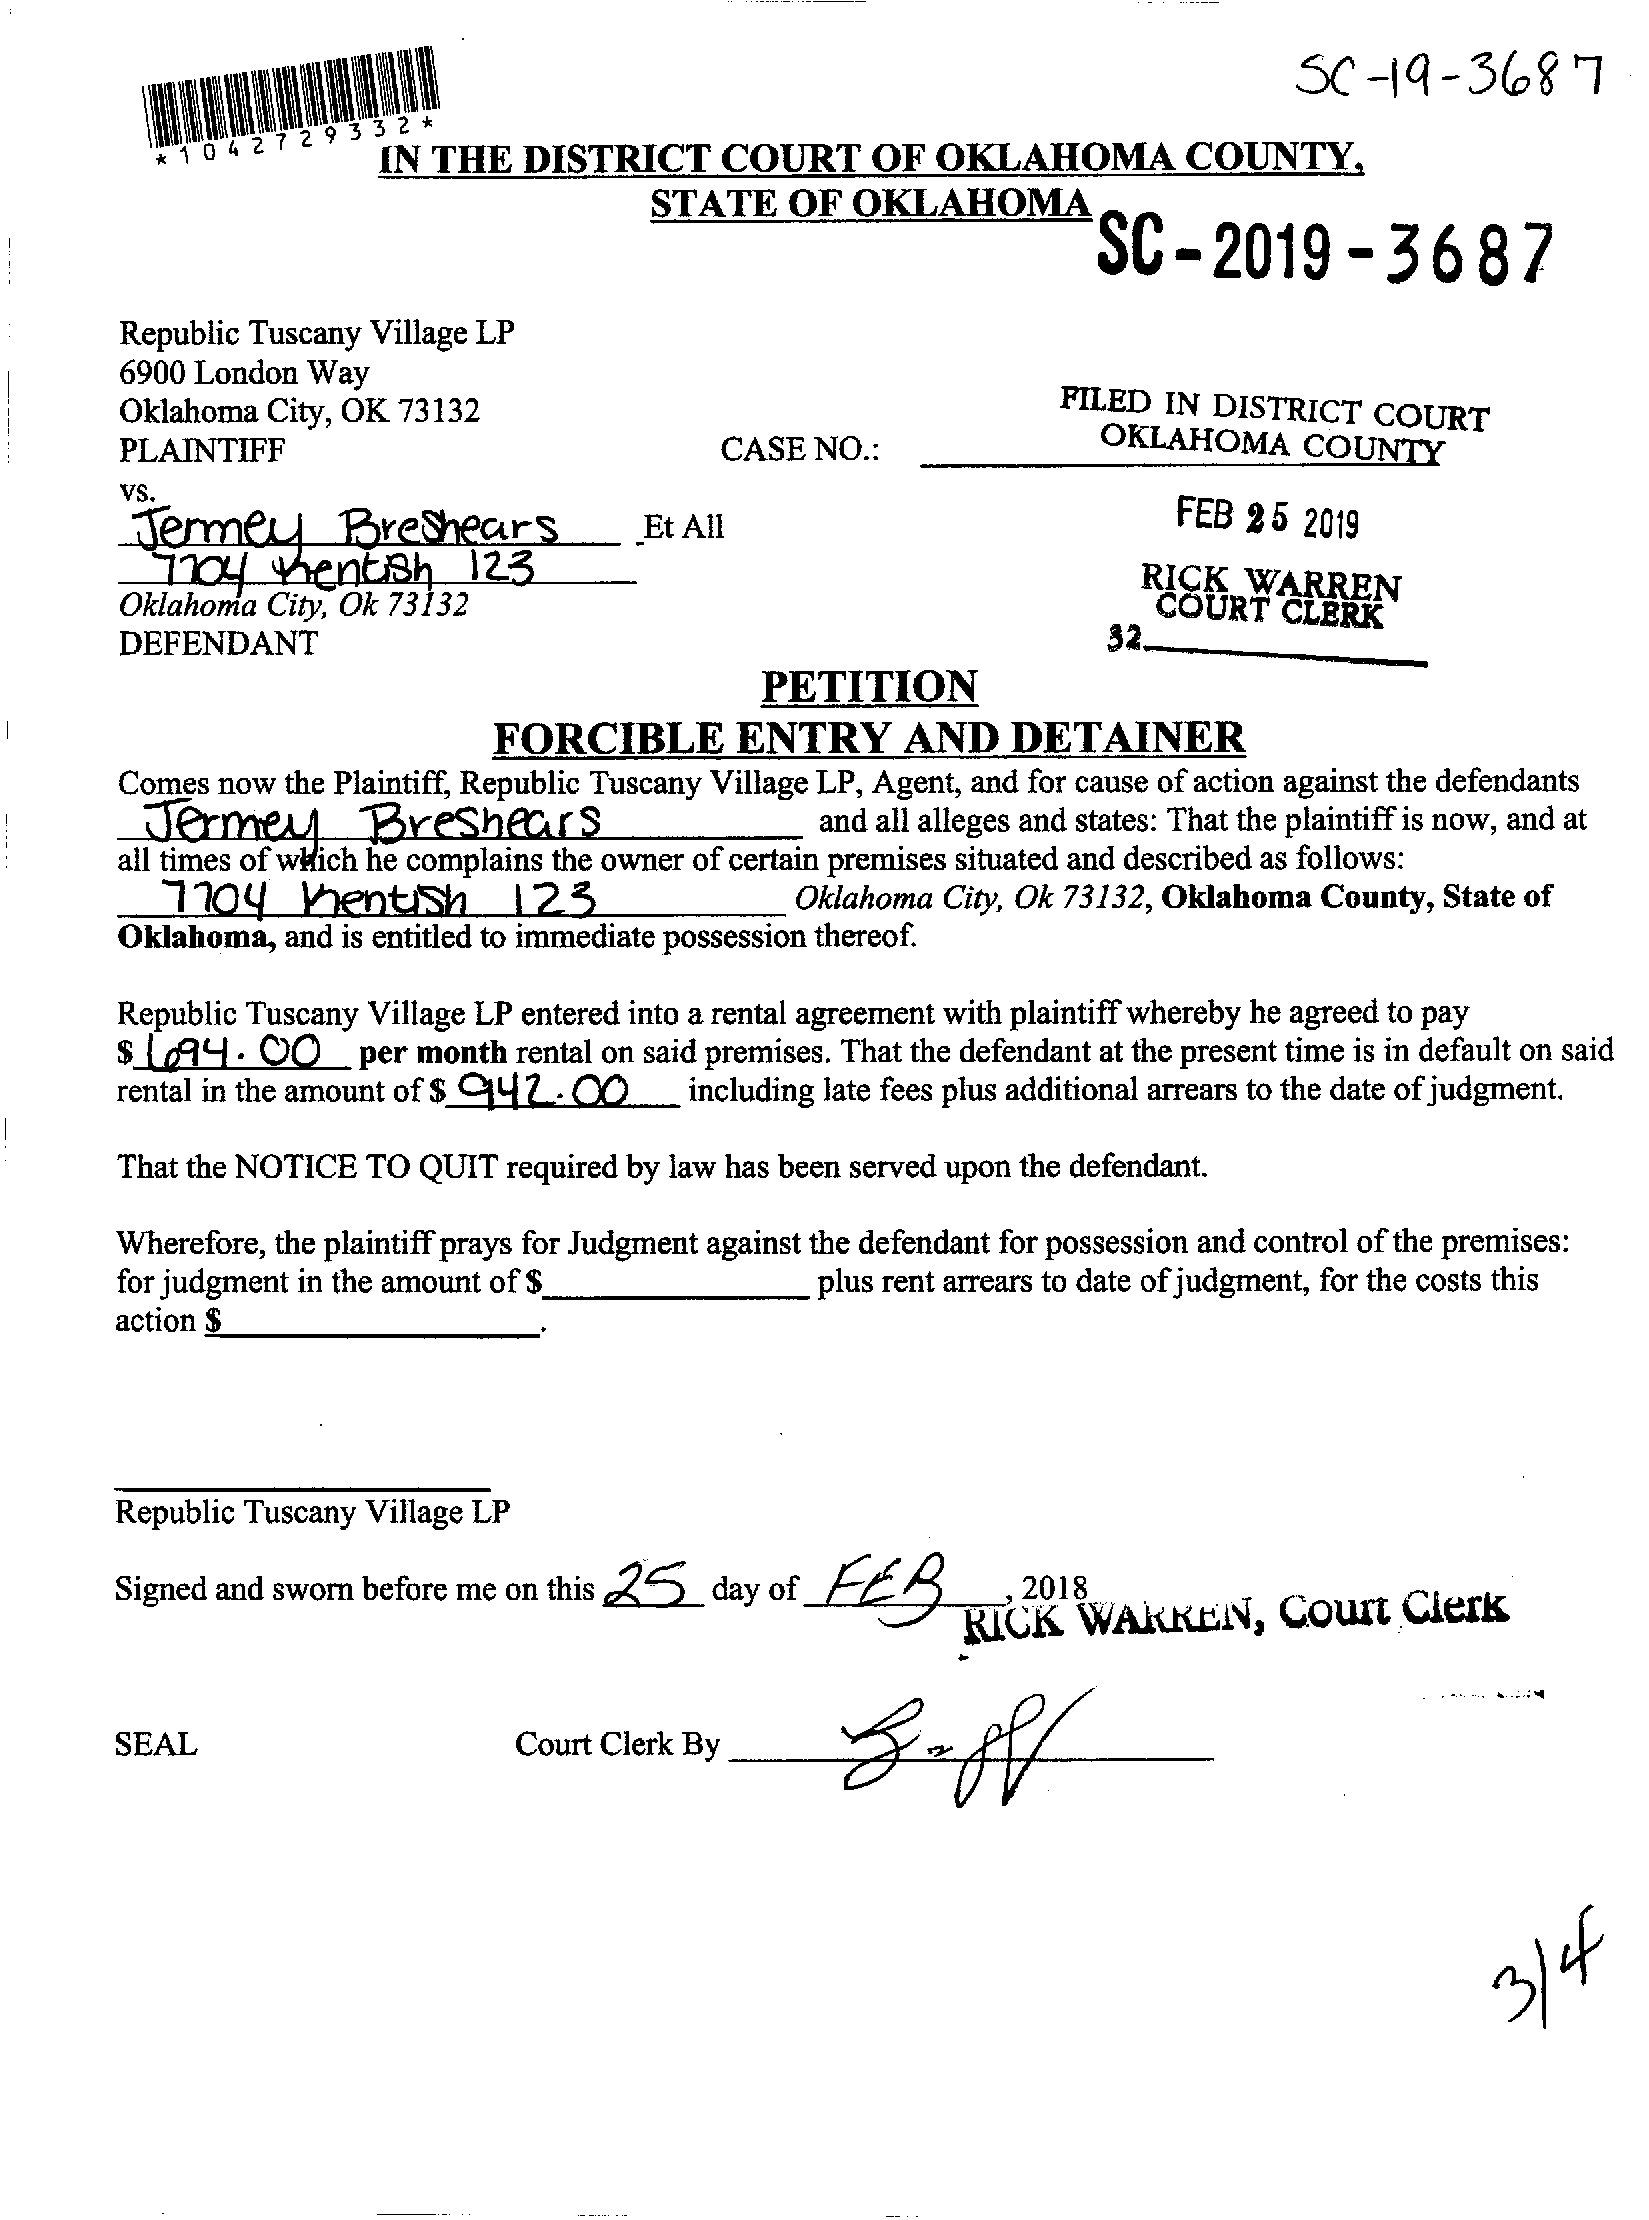 SC-19-3687
*1042729332*
IN THE DISTRICT COURT OF OKLAHOMA COUNTY,
STATE OF OKLAHOMA
SC-2019-3687
Republic Tuscany Village LP
6900 London Way
Oklahoma City, OK 73132
PLAINTIFF CASE NO.:
FILED IN DISTRICT COURT
OKLAHOMA COUNTY
FEB 25 2019
RICK WARREN
COURT CLERK
32
vs.
Jermey Breshears Et All
7704 Kentish 123
Oklahoma City, Ok 73132
DEFENDANT
PETITION
FORCIBLE ENTRY AND DETAINER
Comes now the Plaintiff, Republic Tuscany Village LP, Agent, and for cause of action against the defendants
Jermey Breshears and all alleges and states: That the plaintiff is now, and at
all times of which he complains the owner of certain premises situated and described as follows:
7704 Kentish 123 Oklahoma City, Ok 73132, Oklahoma County, State of
Oklahoma, and is entitled to immediate possession thereof.
Republic Tuscany Village LP entered into a rental agreement with plaintiff whereby he agreed to pay
$ 694.00 per month rental on said premises. That the defendant at the present time is in default on said
rental in the amount of $ 942.00 including late fees plus additional arrears to the date of judgment.
That the NOTICE TO QUIT required by law has been served upon the defendant.
Wherefore, the plaintiff prays for Judgment against the defendant for possession and control of the premises:
for judgment in the amount of $ plus rent arrears to date of judgment, for the costs this
action $ .
Republic Tuscany Village LP
Signed and sworn before me on this 25 day of FEB, 2018
RICK WARREN, Court Clerk
SEAL Court Clerk By
3/4